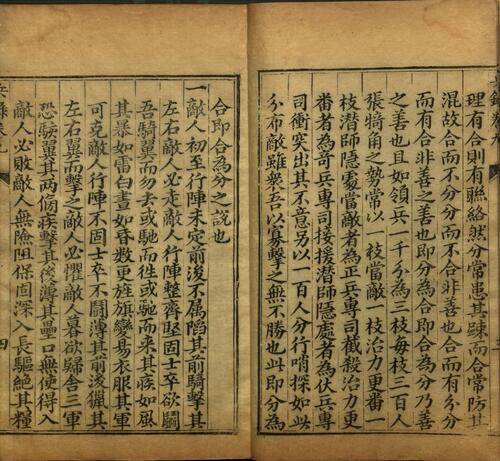 理有合則有聯絡然分常患其踈而合常防其
混故合而不分分而不合非善也合而有分分
而有合非善之善也即分為合即合為分乃善
之善也且如領兵一千分為三枝每枝三百人
張犄角之勢常以一枝當敵一枝治力更番一
枝潜師隱處當敵者為正兵專司截殺治力更
番者為奇兵專司接援潜師隱處者為伏兵專
司衝突出其不意另以一百人分行哨探如此
分布敵雖衆吾以寡擊之無不勝也此即分為
合即合為分之說也
一敵人初至行陣未定前後不属陷其前騎擊其
左右敵人必走敵人行陣整齊堅固士卒欲鬬
吾騎翼而勿去或馳而徃或馳而来其疾如風
其暴如雷白晝如昏数更旌旗變易衣服其軍
可克敵人行陣不固士卒不鬬薄其前後獵其
左右翼而擊之敵人必懼敵人暮欲歸舍三軍
恐駭翼其两傍疾擊其後薄其壘口無使得入
敵人必敗敵人無險阻保固深入長驅絕其糧